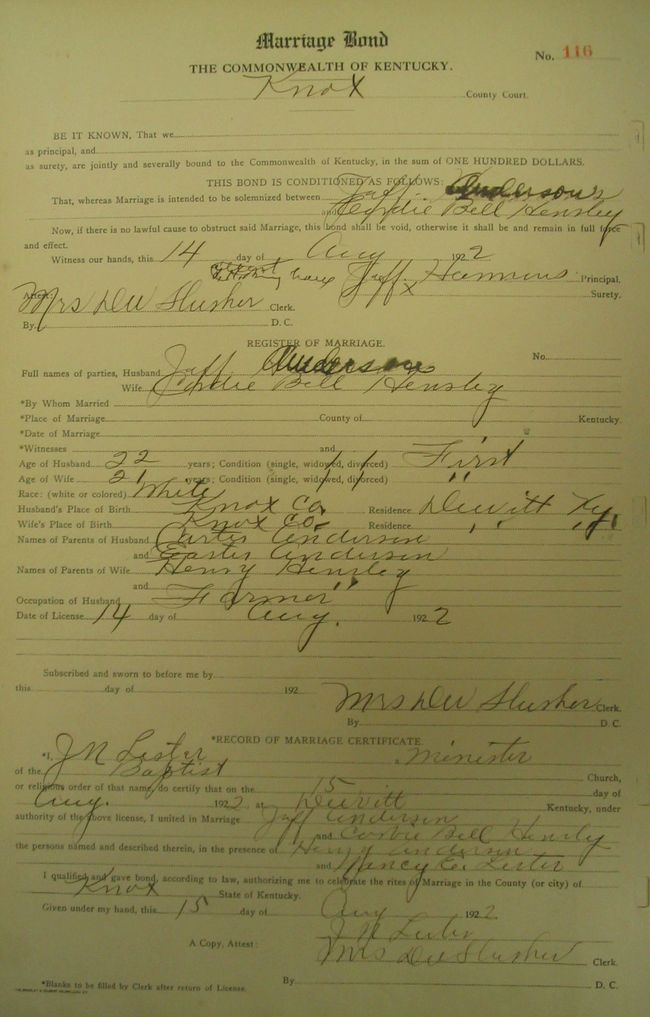 Marriage Bond
No. 116
THE COMMONWEALTH OF KENTUCKY.
Knox County Court.
BE IT KNOWN, That we
as principal, and
as surety, are jointly and severally bound to the Commonwealth of Kentucky, in the sum of ONE HUNDRED DOLLARS.
THIS BOND IS CONDITIONED AS FOLLOWS:
That, whereas Marriage is intended to be solemnized between Jaff Anderson
and Cordie Bell Hensley
Now, if there is no lawful cause to obstruct said Marriage, this bond shall be void, otherwise it shall be and remain in full force
and effect.
Witness our hands, this 14 day of Aug 1922
Jaff Hammons Principal.
Jaff x Surety.
Attest:
Mrs DW Slusher Clerk.
By D. C.
REGISTER OF MARRIAGE.
No.
Full names of parties, Husband Jaff Anderson
Wife Cordie Bell Hensley
*By Whom Married
*Place of Marriage County of Kentucky.
*Date of Marriage
*Witnesses and
Age of Husband 22 years; Condition (single, widowed, divorced) First
Age of Wife 21 years; Condition (single, widowed, divorced) "
Race: (white or colored) White
Husband's Place of Birth Knox Co. Residence Dewitt Ky.
Wife's Place of Birth Knox Co. Residence " "
Names of Parents of Husband Carter Anderson
and Easter Anderson
Names of Parents of Wife Henry Hensley
and "
Occupation of Husband Farmer
Date of License 14 day of Aug. 1922
Subscribed and sworn to before me by
this day of 192
Mrs DW Slusher Clerk.
By D. C.
*RECORD OF MARRIAGE CERTIFICATE
*I, J N Lester a Minister
of the Baptist Church,
or religious order of that name, do certify that on the 15 day of
Aug. 1922 at Dewitt Kentucky, under
authority of the above license, I united in Marriage Jaff Anderson
and Cordie Bell Hensley
the persons named and described therein, in the presence of Henry Anderson
and Nancy E. Lester
I qualified and gave bond, according to law, authorizing me to celebrate the rites of Marriage in the County (or city) of
Knox State of Kentucky.
Given under my hand, this 15 day of Aug 1922
J N Lester
A Copy, Attest: Mrs DW Slusher Clerk.
By D. C.
*Blanks to be filled by Clerk after return of License.